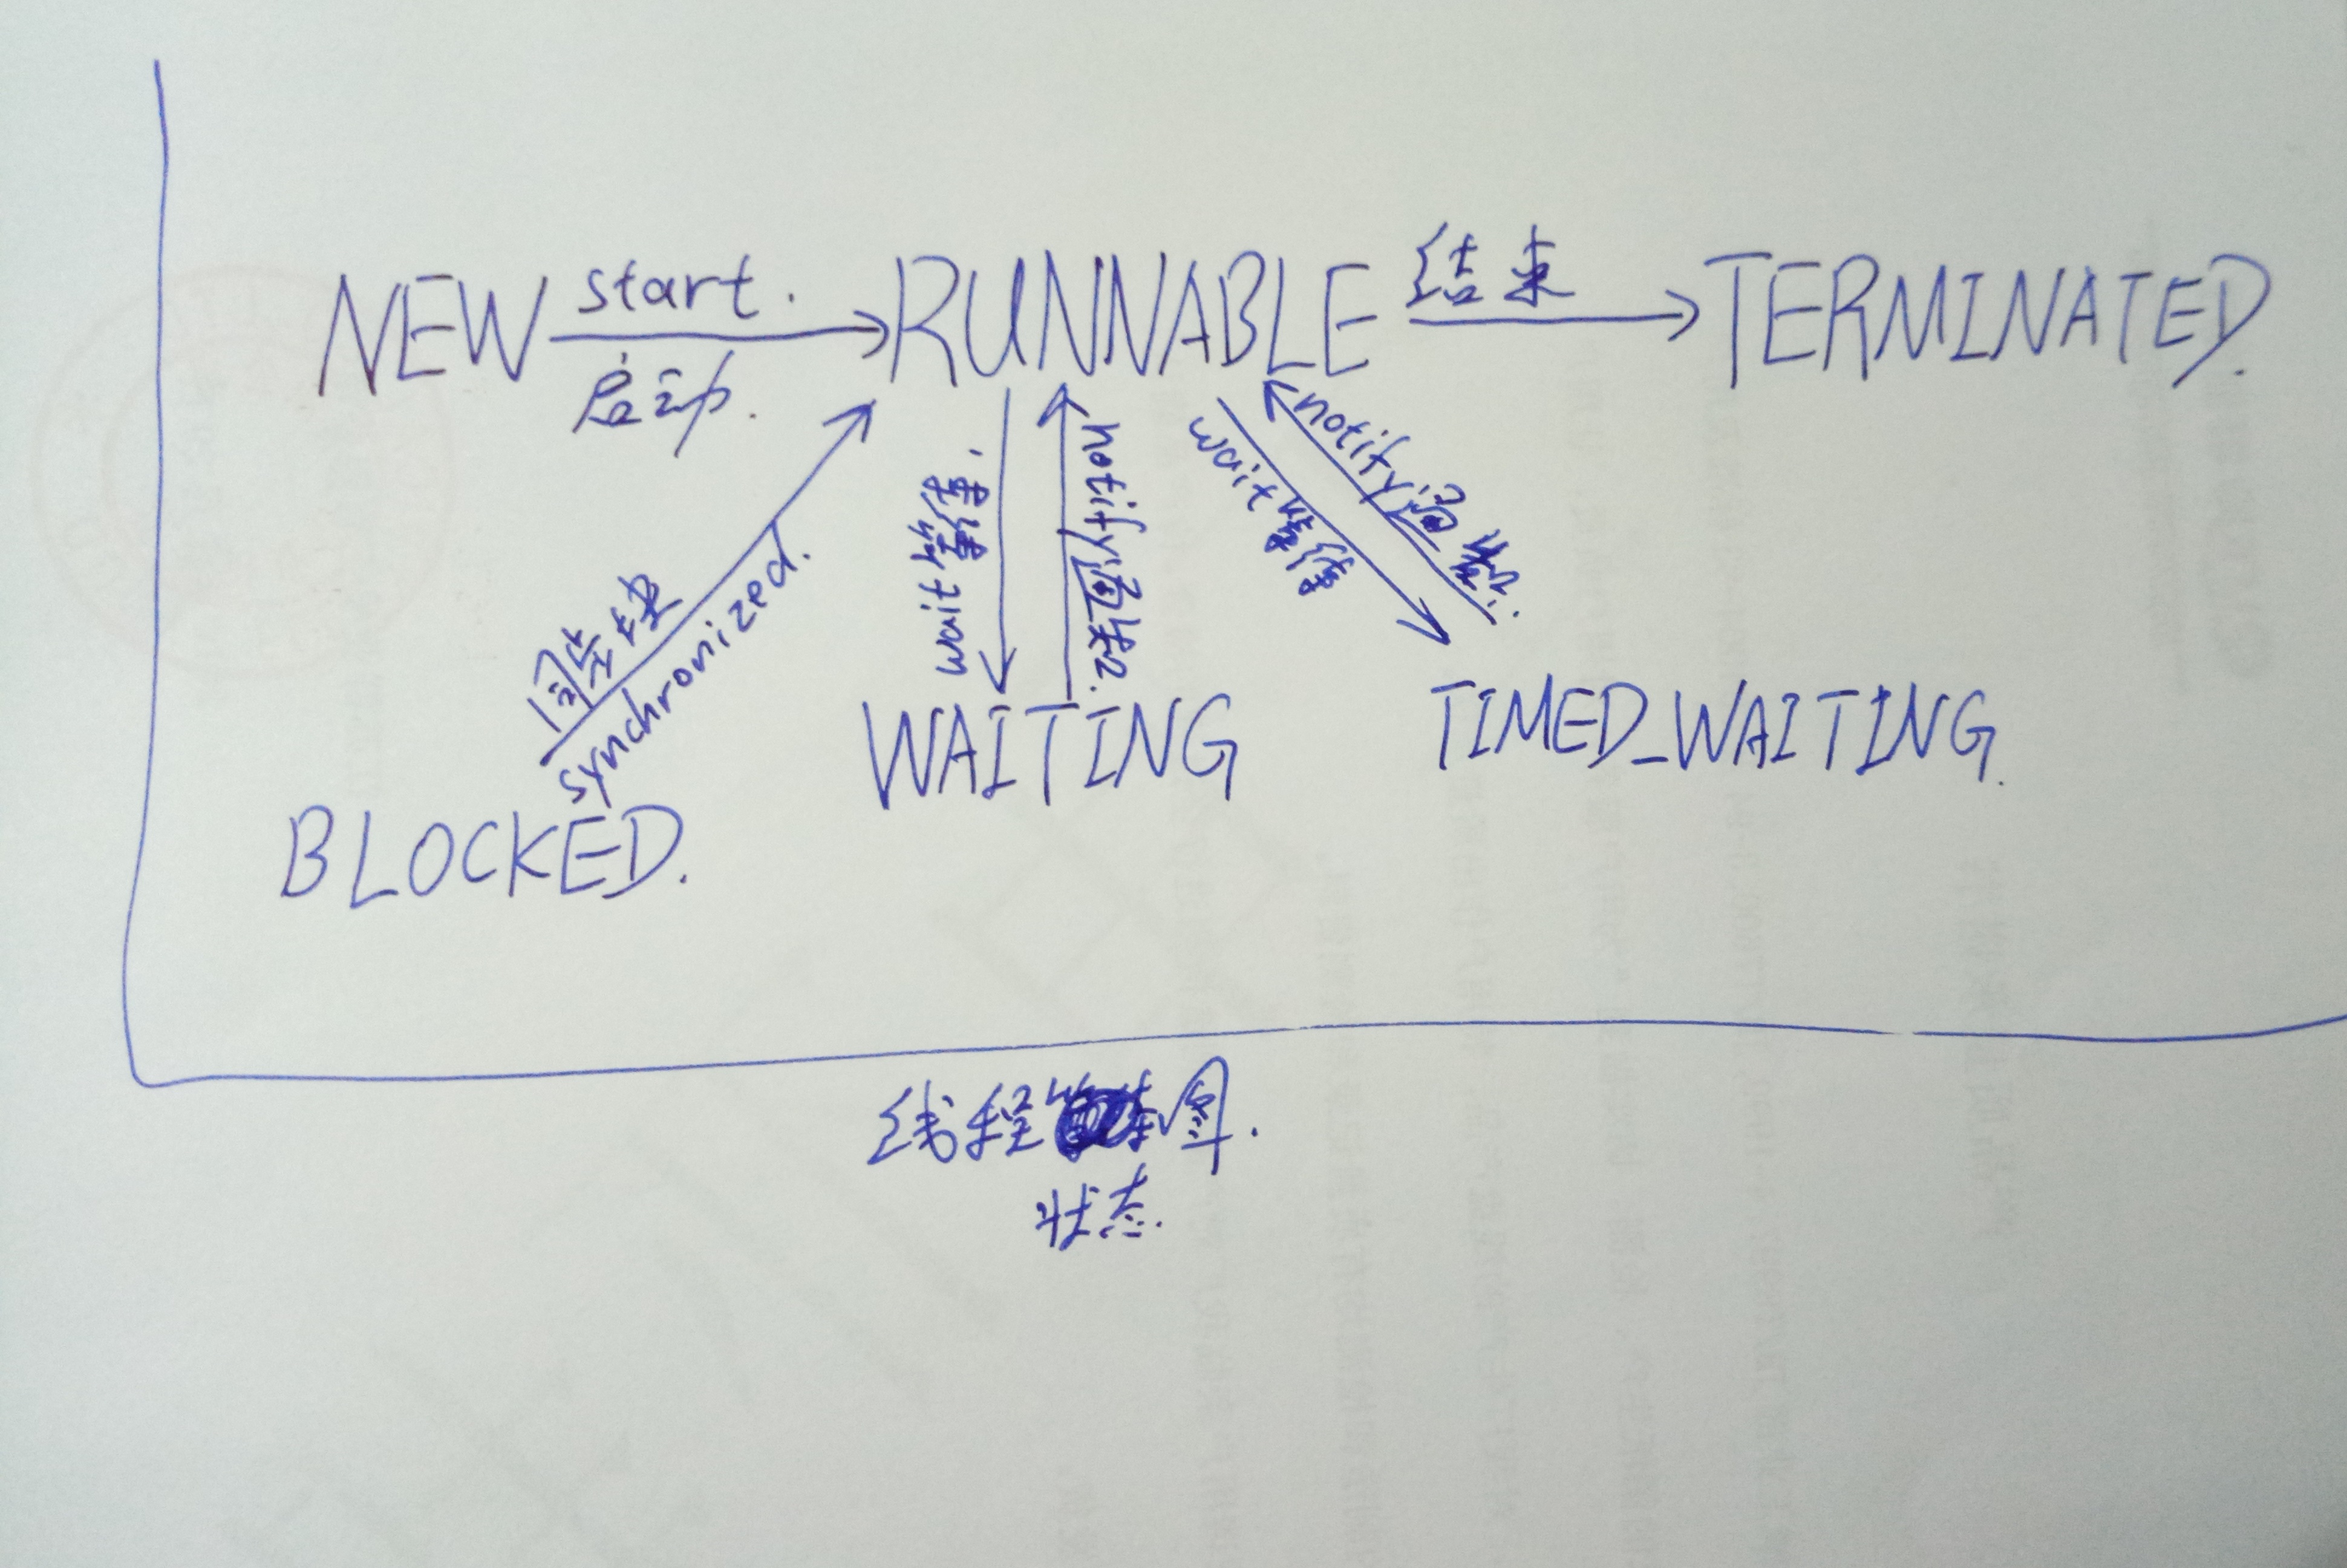 NEW
start.
启动.
RUNNABLE
结束
TERMINATED.
同步块
synchronized.
wait等待.
notify通知.
wait等待
notify通知.
BLOCKED.
WAITING
TIMED_WAITING.
线程图.
状态.